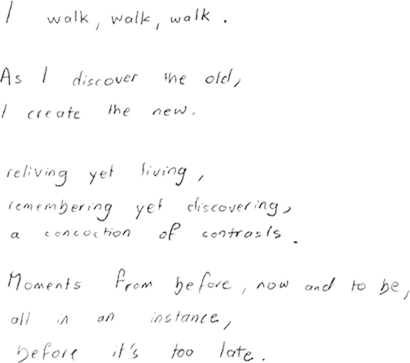 I walk, walk, walk.
As I discover the old,
I create the new.
reliving yet living,
remembering yet discovering,
a concoction of contrasts.
Moments from before, now and to be,
all in an instance,
before it's too late.